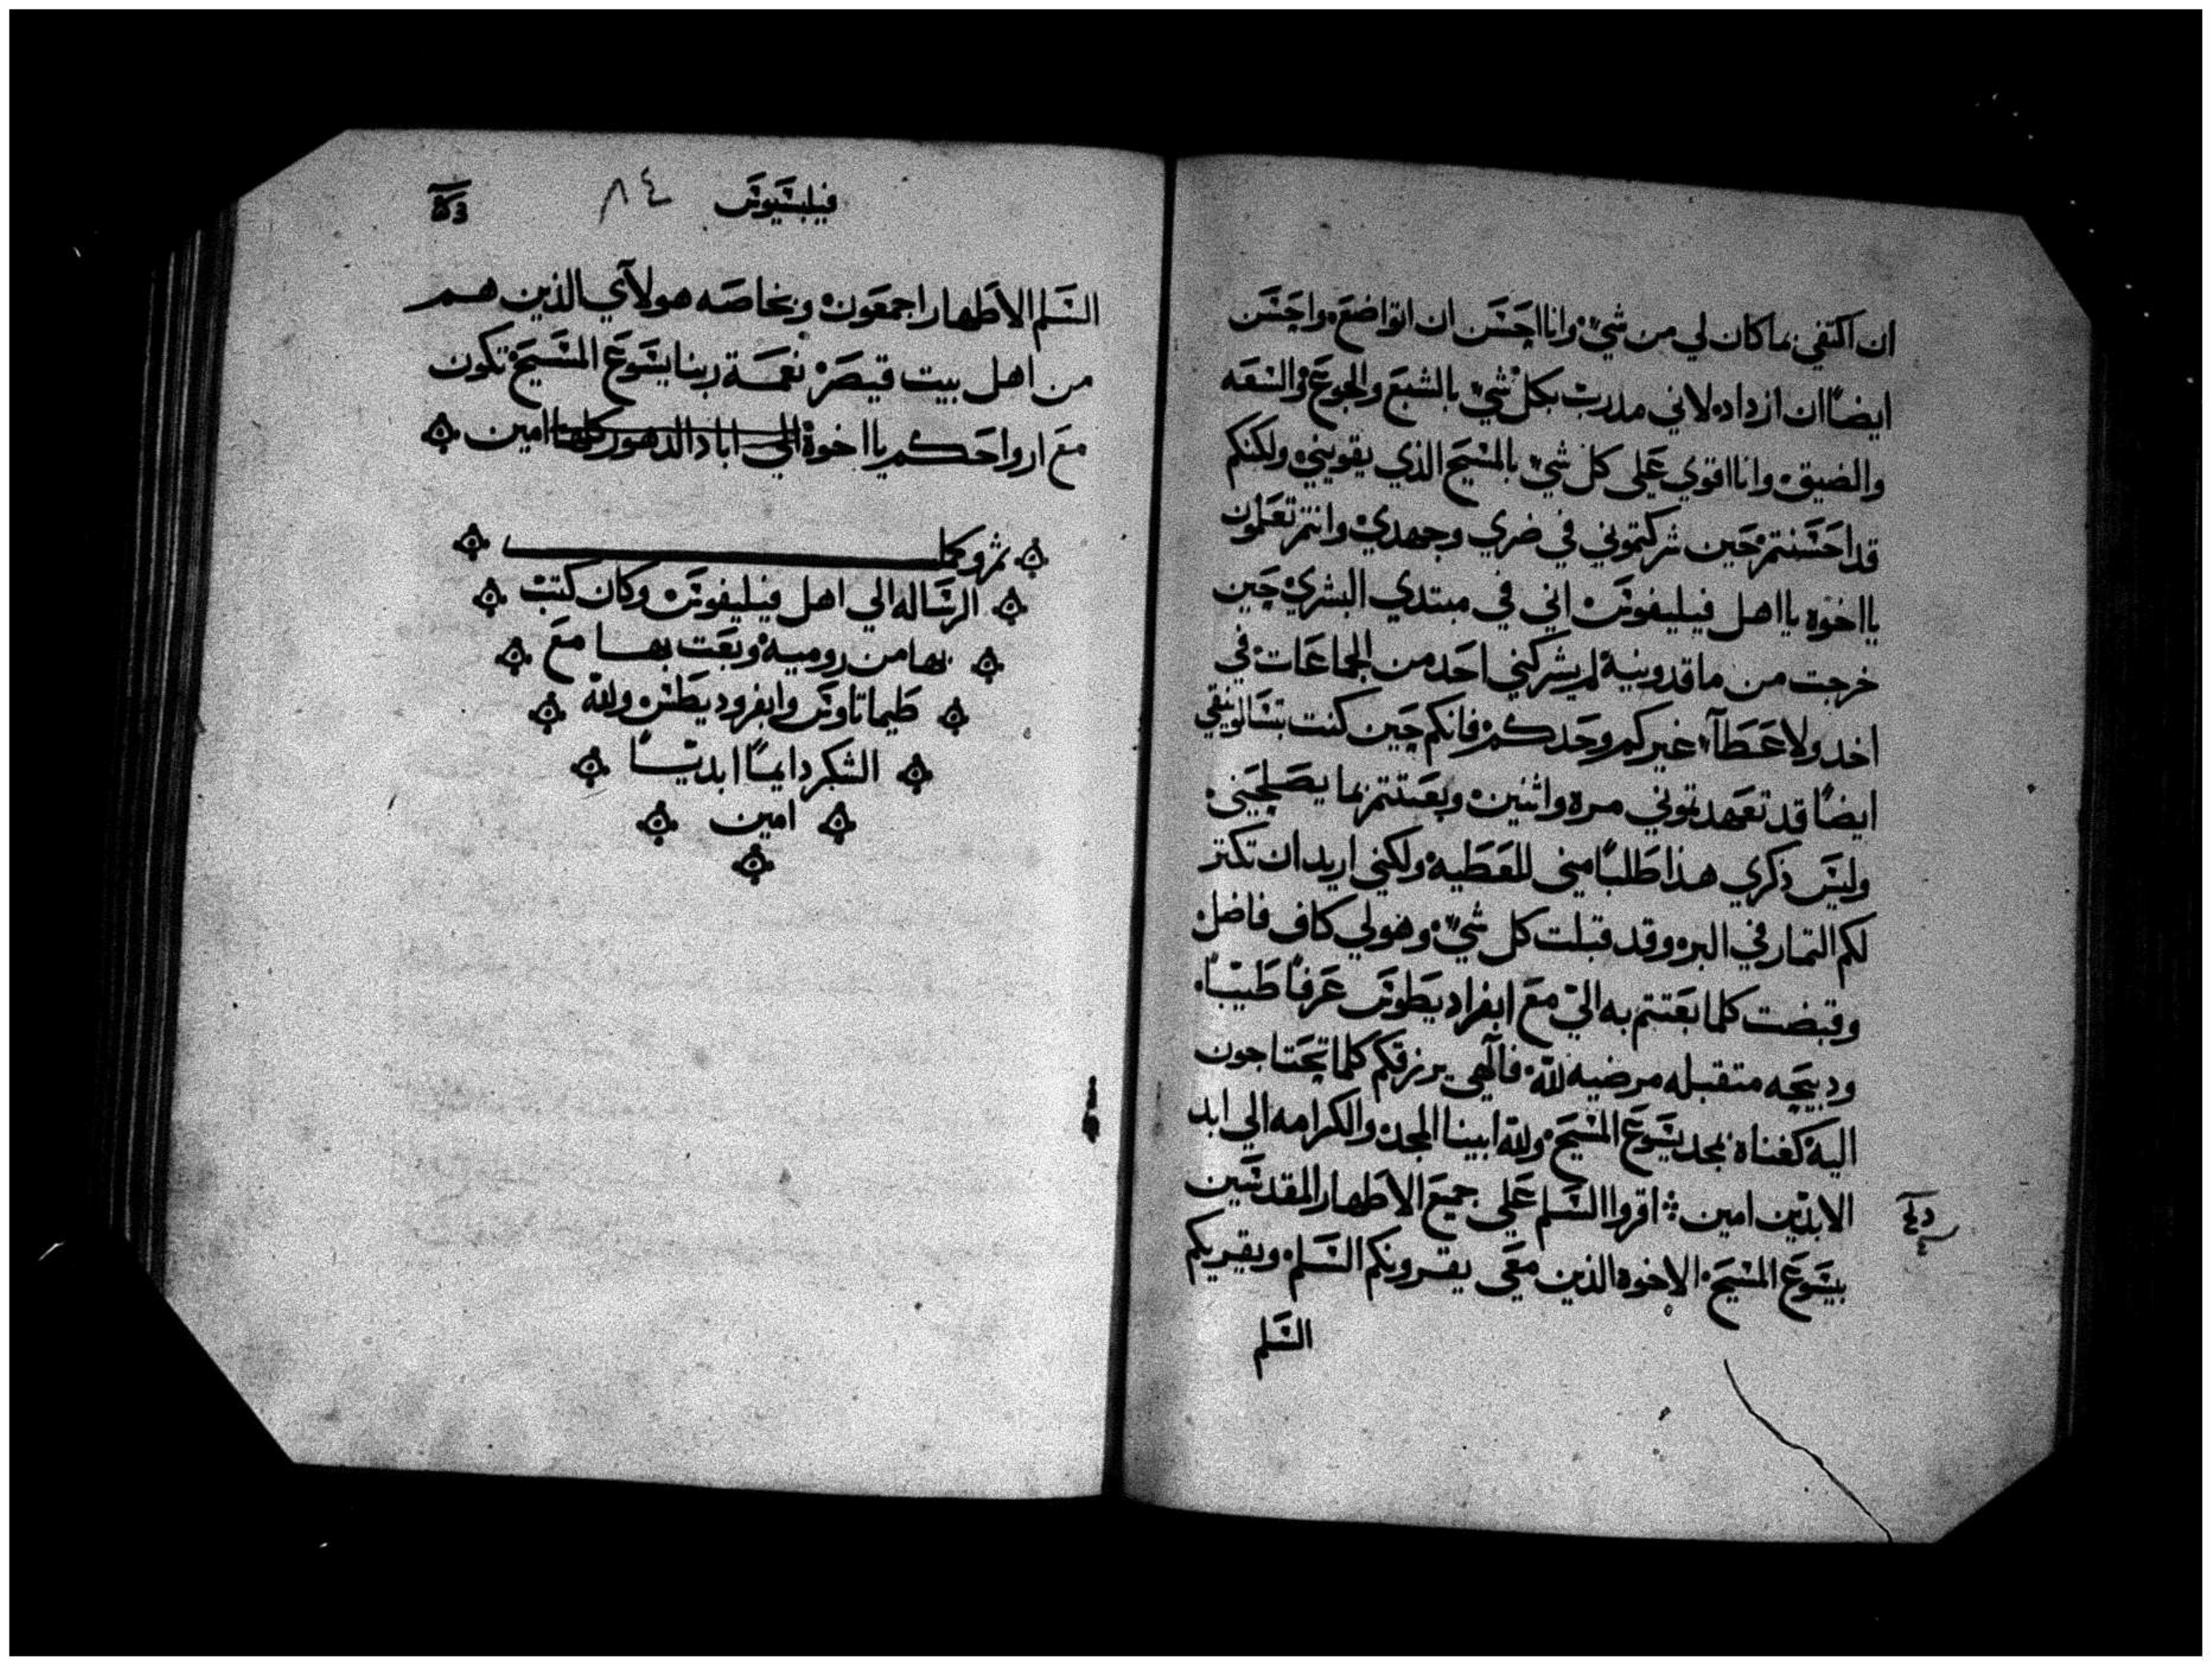 ان اكتفي بما كان لي من شيء وانا احسن ان اتواضع واحسن
ايضًا ان ازداد لاني مدرب بكل شيء بالشبع والجوع والسعه
والضيق وانا اقوي علي كل شيء بالمسيح الذي يقويني ولكنكم
قد احسنتم حين شركتموني في ضري وجهدي وانتم تعلمون
يا اخوه يا اهل فيليفوس اني في مبتدي البشري حين
خرجت من ماقدونية لم يشركني احد من الجماعات في
اخد ولا عطآء غيركم وحدكم فانكم حين كنت بتسالونيقي
ايضًا قد تعهدتوني مره واثنين وبعتتم بما يصلحني
وليس ذكري هذا طلبًا مني للعطيه ولكني اريد ان تكتر
لكم التمار في البر وقد قبلت كل شيء وهو لي كاف فاضل
وقبضت كلما بعتتم به الي مع ابفراديطوس عرفًا طيبًا
ودبيحه متقبله مرضيه لله فآلهي يرزقكم كلما تحتاجون
اليه كغناه بمجد يسوع المسيح ولله ابينا المجد والكرامه الي ابد
الابدين امين اقروا السلم علي جميع الاطهار المقدسين
بيسوع المسيح الاخوه الذين معي يقرونكم السلم ويقريكم
السلم
فيلبسيوس ٨٤
السلم الاطهار اجمعون وبخاصه هولآي الذين هم
من اهل بيت قيصر نعمة ربنا يسوع المسيح تكون
مع ارواحكم يا اخوة الي اباد الدهور كلها امين
تم وكملـ
الرساله الي اهل فيليفوس وكان كتب
بها من رومية وبعت بها مع
طيماتاوس وابفروديطس ولله
الشكر دايمًا ابديًا
امين